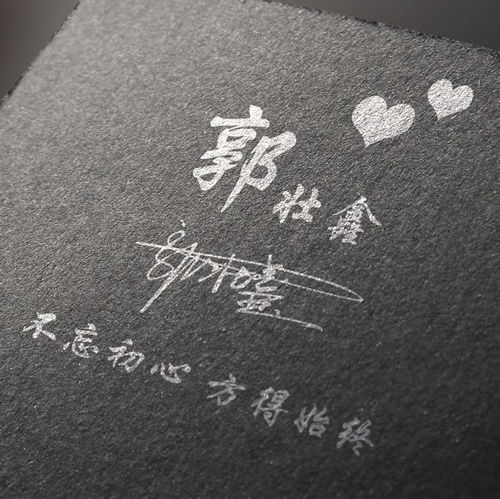 郭壮鑫
不忘初心 方得始终